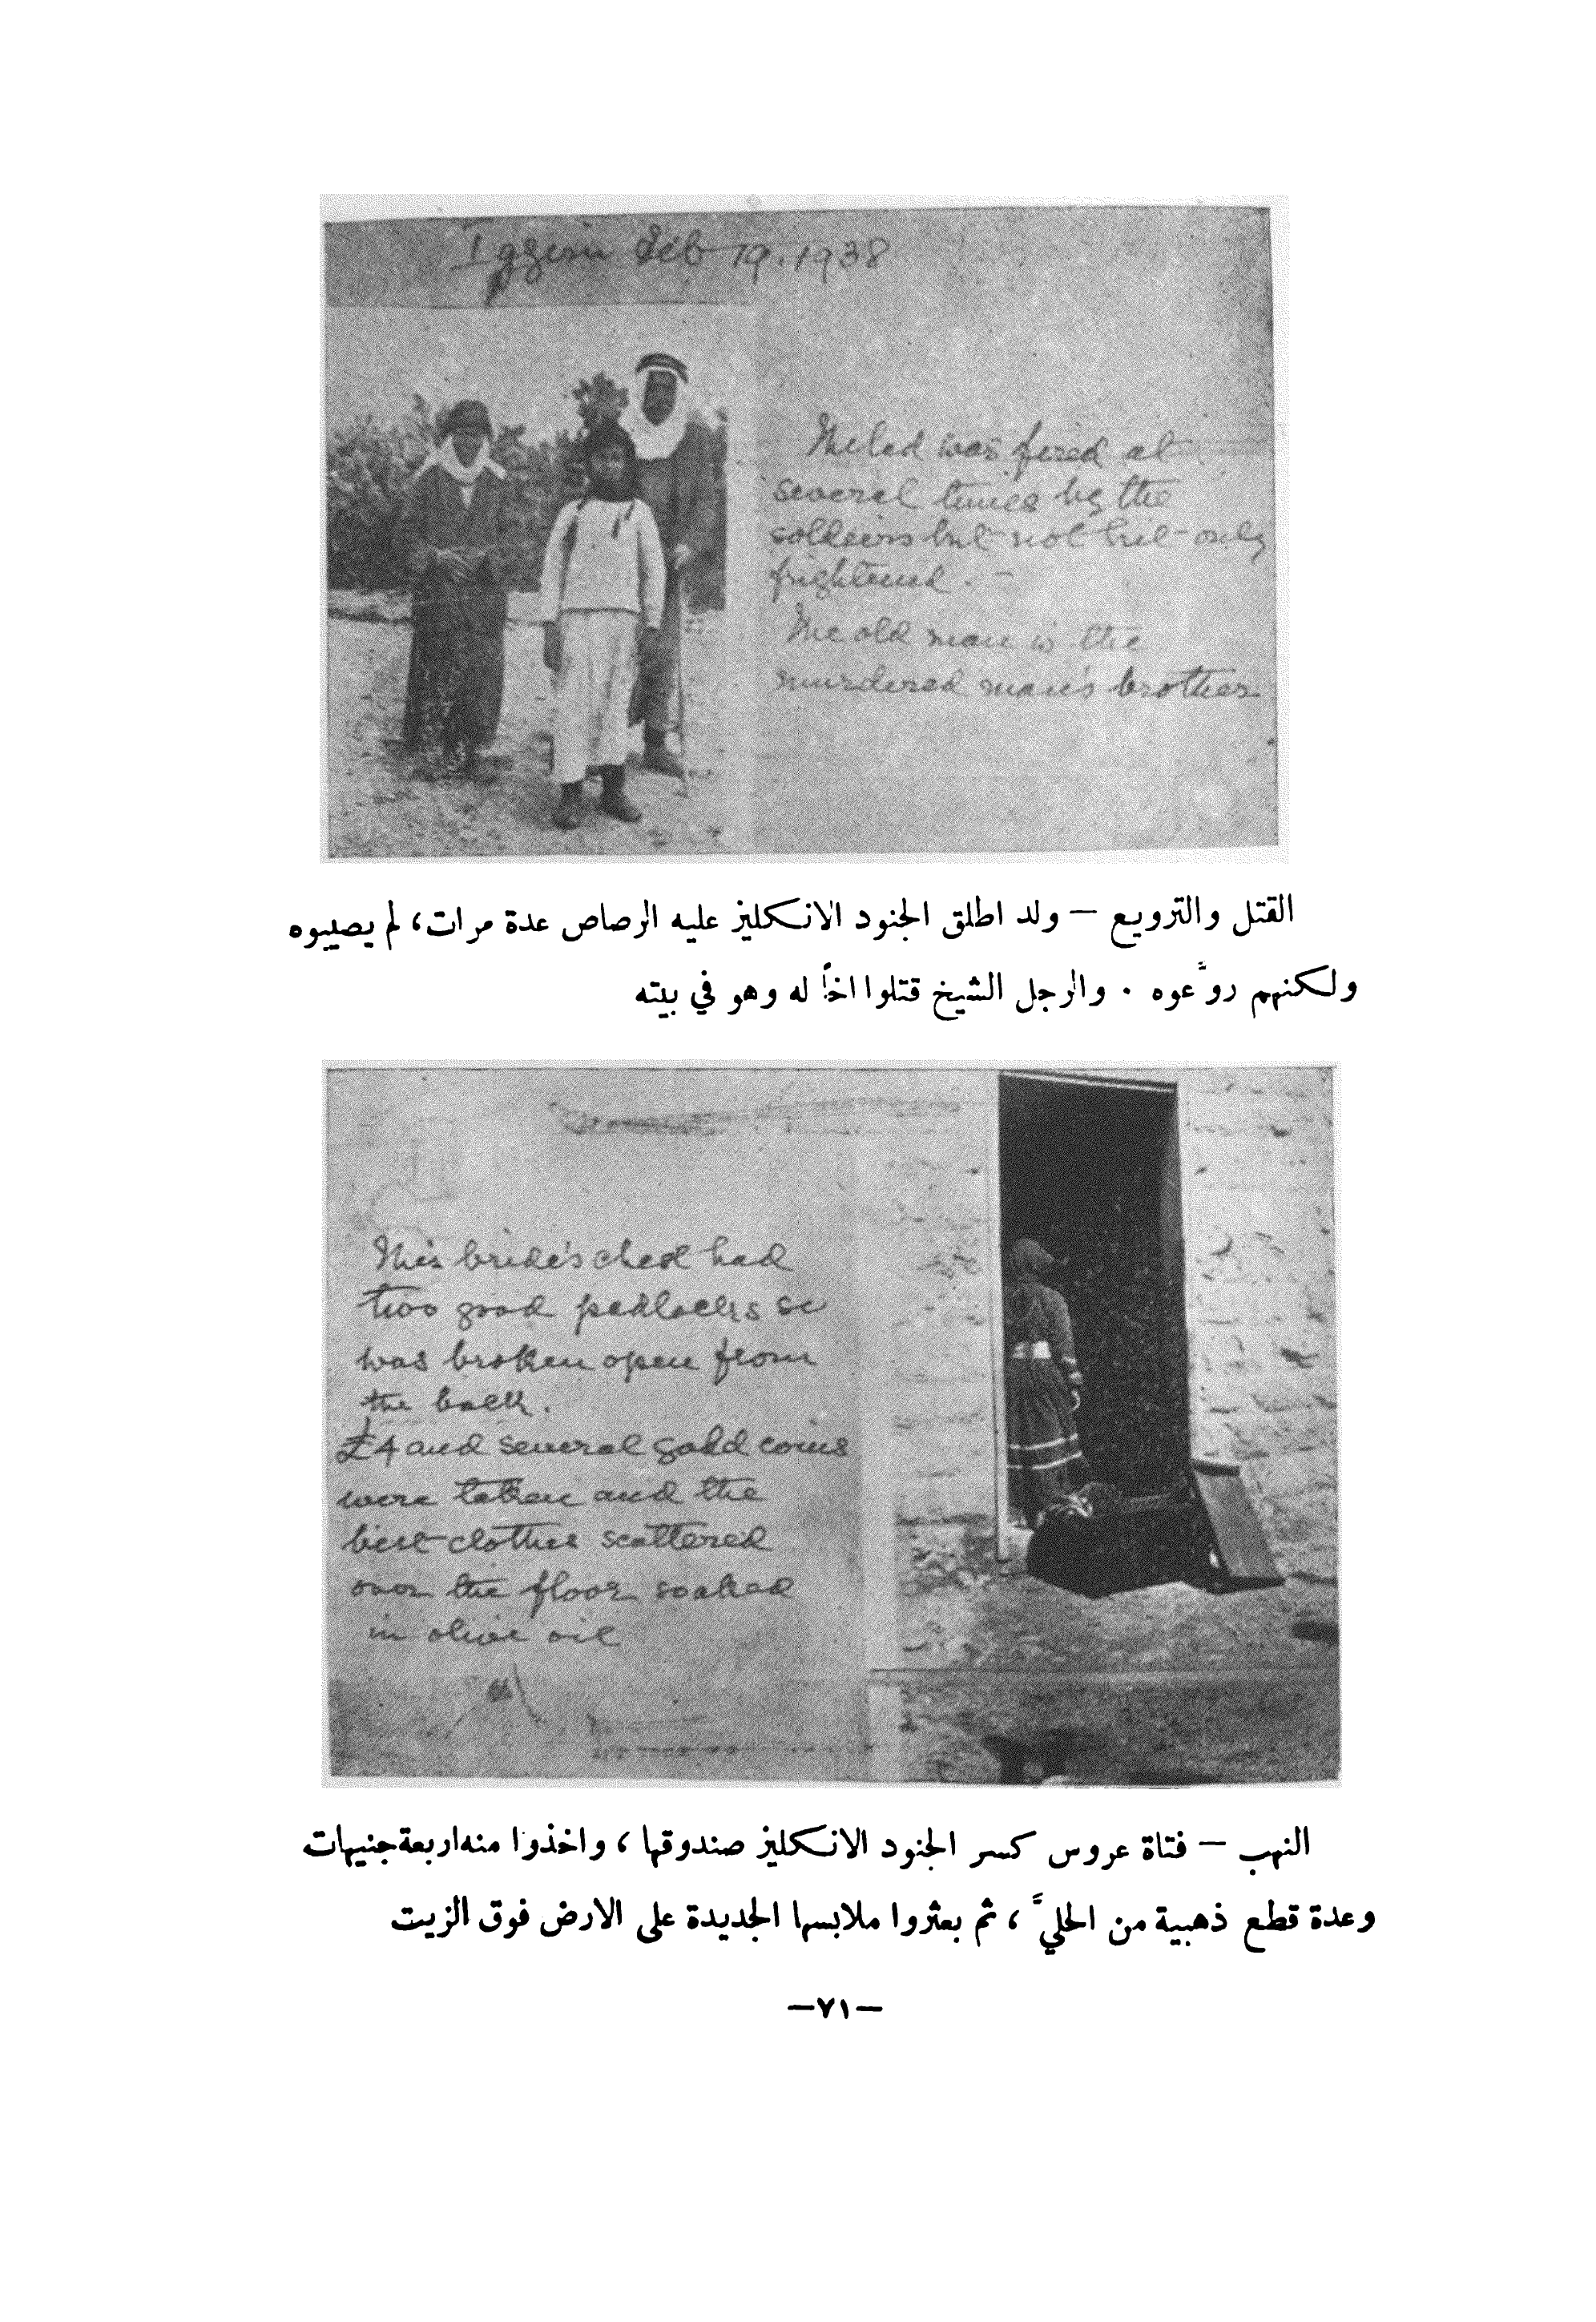 Igzim Feb 19. 1938
The lad was fired at
several times by the
soldiers but not hit only
frightened. –
The old man is the
murdered man's brother
القتل والترويع – ولد اطلق الجنود الانكليز عليه الرصاص عدة مرات، لم يصيبوه
ولكنهم روَّعوه . والرجل الشيخ قتلوا اخاً له وهو في بيته
This bride's chest had
two good padlocks so
was broken open from
the back.
£4 and several gold coins
were taken and the
best clothes scattered
over the floor soaked
in olive oil
النهب – فتاة عروس كسر الجنود الانكليز صندوقها ، واخذوا منه اربعة جنيهات
وعدة قطع ذهبية من الحليَّ ، ثم بعثروا ملابسها الجديدة على الارض فوق الزيت
–٧١–